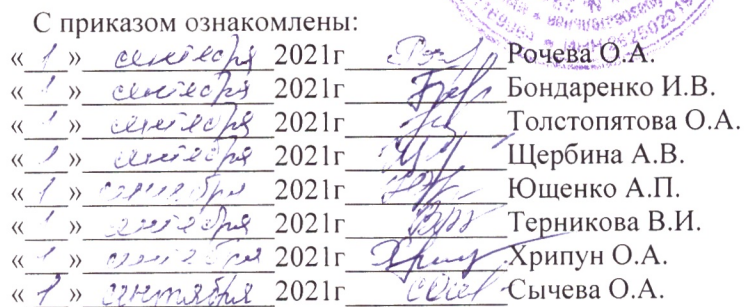 С приказом ознакомлены:
« 1 » сентября 2021г Рочева О.А.
« 1 » сентября 2021г Бондаренко И.В.
« 1 » сентября 2021г Толстопятова О.А.
« 1 » сентября 2021г Щербина А.В.
« 1 » сентября 2021г Ющенко А.П.
« 1 » сентября 2021г Терникова В.И.
« 1 » сентября 2021г Хрипун О.А.
« 1 » сентября 2021г Сычева О.А.